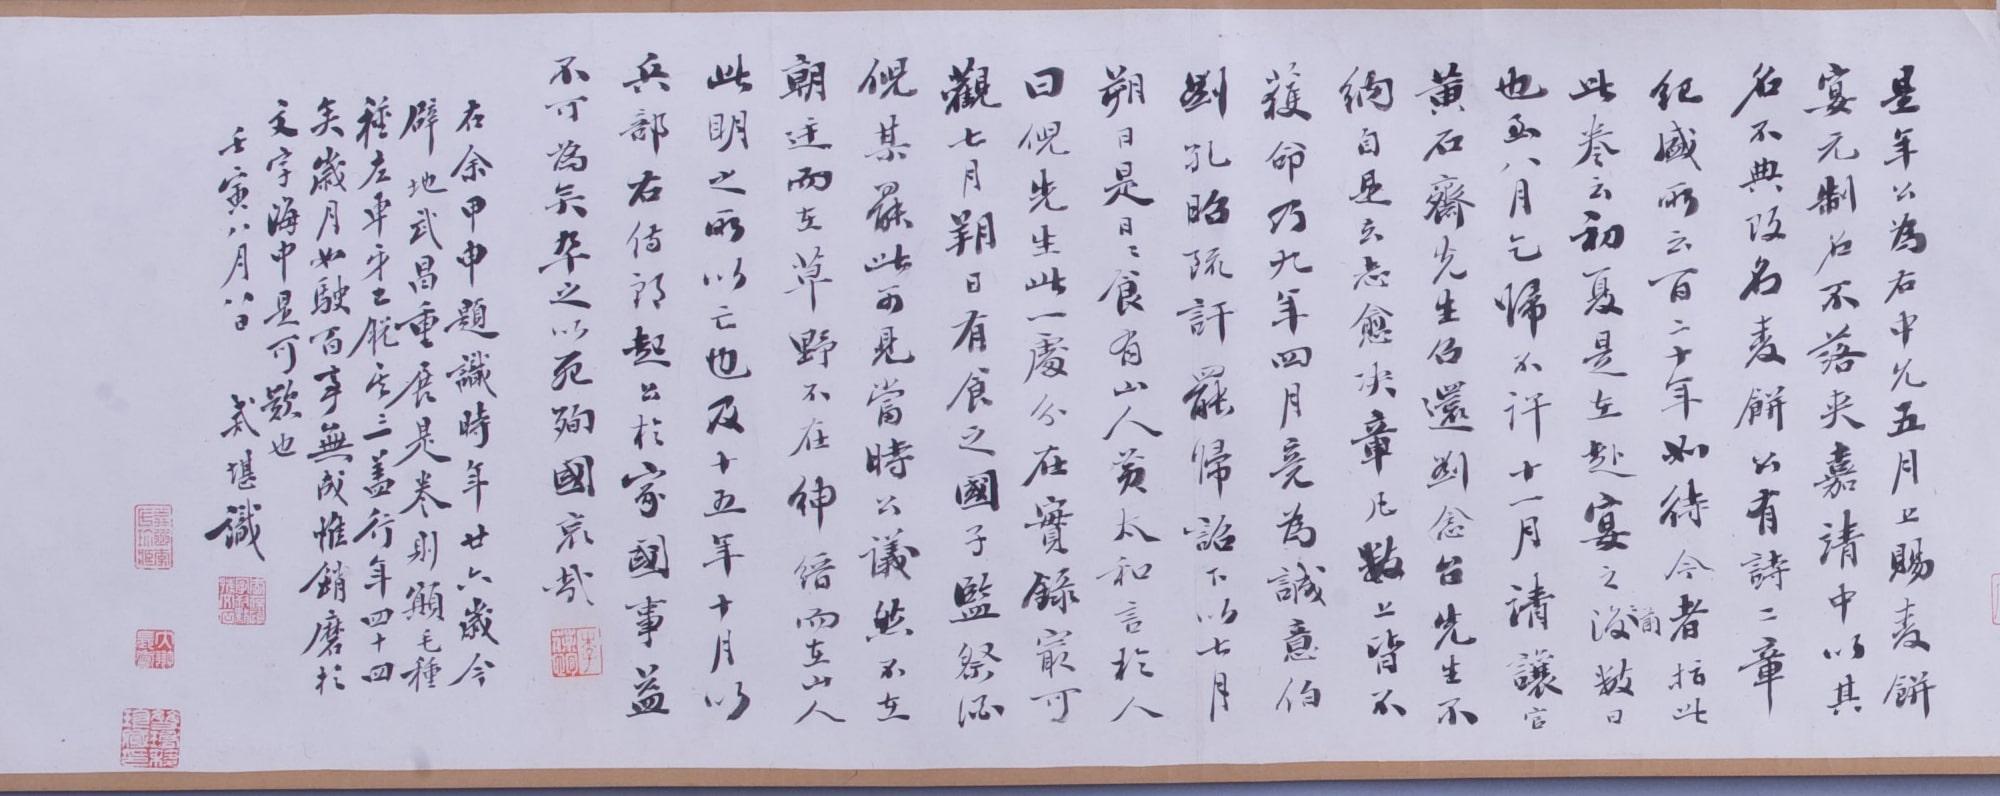 是年公為右中允五月上賜麦餅
宴元制名不落夾嘉請中以其
名不典改名麦餅公有詩二章
紀盛所云百二十年如待今者指此
此卷云初夏是在赴宴之後數日
也至八月乞歸不許十一月請讓官
黃石齋先生召還劉念台先生不
納自是去志愈決章凡數上皆不
獲命乃九年四月竟為誠意伯
劉孔昭疏訐罷歸詔下以七月
朔日是日日食有山人黃太和言於人
曰倪先生此一處分在實錄最可
觀七月朔日有食之國子監祭酒
倪某罷此可見當時公議然不在
朝廷而在草野不在紳縉而在山人
此明之所以亡也及十五年十月以
兵部右侍郎起公於家國事益
不可為矣卒之以死殉國哀哉
右余甲申題識時年廿六歲今
辟地武昌重展是卷則顛毛種
種左車牙已脫其三蓋行年四十四
矣歲月如駛百事無成惟銷磨於
文字海中是可歎也
壬寅八月八日 式堪識